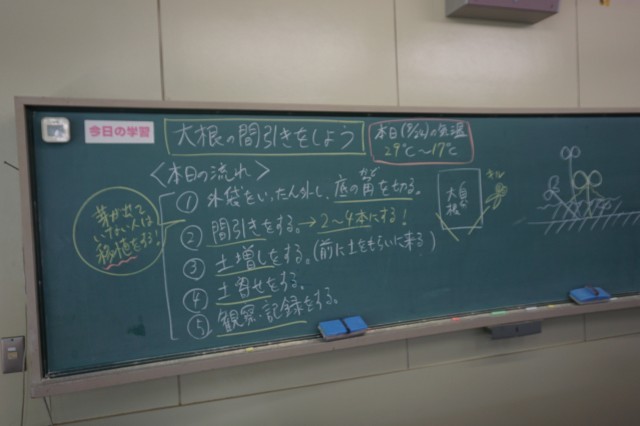 今日の学習
大根の間引きをしよう
本日(9/24)の気温
29℃〜17℃
〈本日の流れ〉
① 外袋をいったん外し、底の角を切る。
かど
② 間引きをする。→2〜4本にする！
③ 土増しをする。(前に土をもらいに来る)
④ 土寄せをする。
⑤ 観察・記録をする。
芽が出て
いない人は
移植をする！
大根